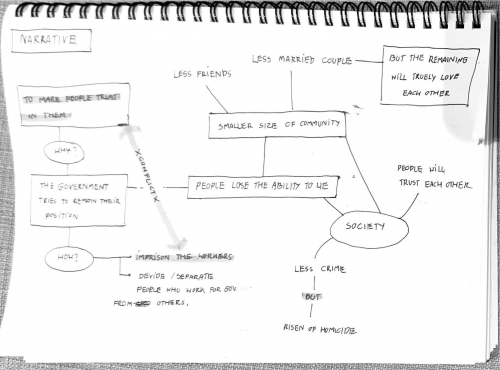 NARRATIVE
TO MAKE PEOPLE TRUST
IN THEM
WHY?
THE GOVERNMENT
TRIES TO REMAIN THEIR
POSITION
HOW?
IMPRISON THE WORKERS
DEVIDE / SEPARATE
PEOPLE WHO WORK FOR GOV
FROM OTHERS.
X CONFLICT X
LESS FRIENDS
LESS MARRIED COUPLE
BUT THE REMAINING
WILL TRUELY LOVE
EACH OTHER
SMALLER SIZE OF COMMUNITY
PEOPLE LOSE THE ABILITY TO LIE
PEOPLE WILL
TRUST EACH OTHER
SOCIETY
LESS CRIME
BUT
RISEN OF HOMICIDE